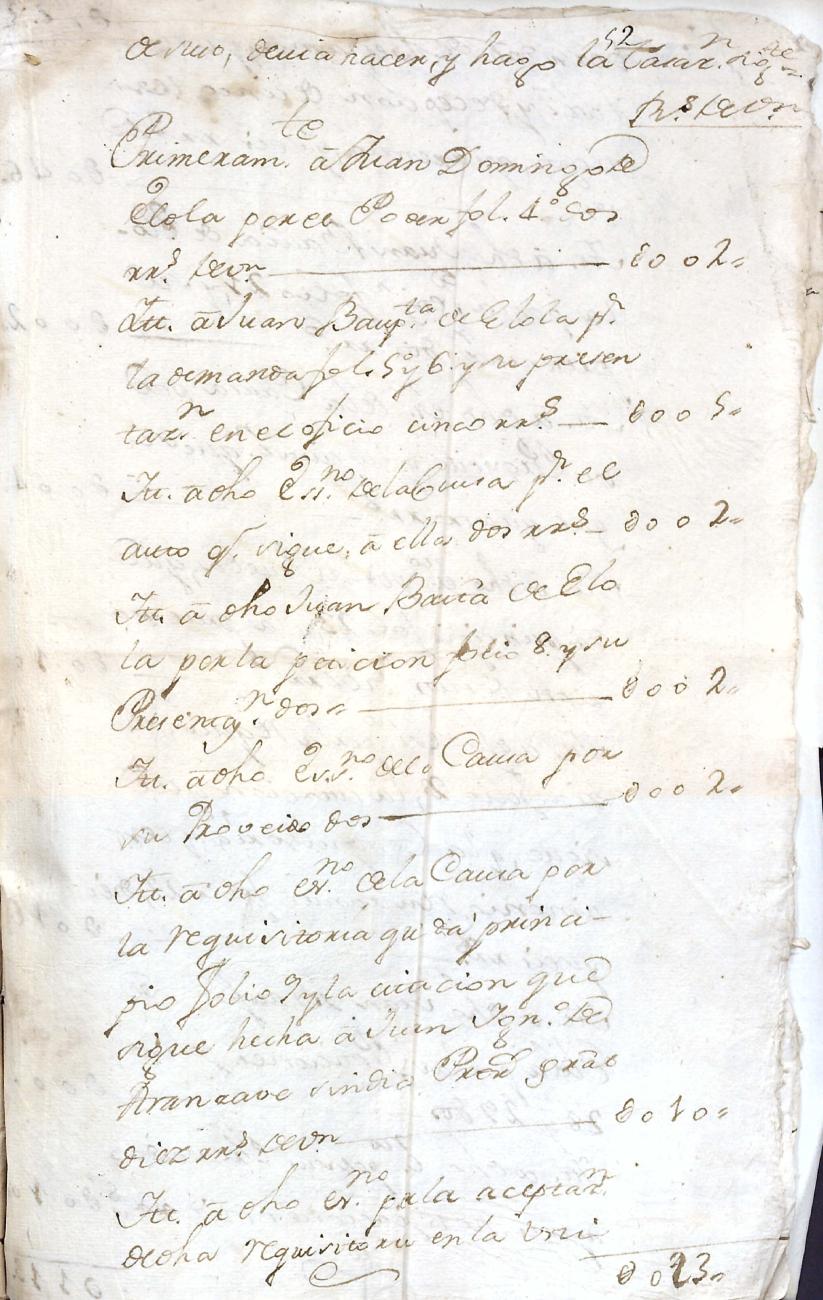 52
devia hacer, y hago la tasaz.n sig.te
R.s de v.n
Primeram.te â Juan Domingo de
Elola por el Poder fol. 4.o dos
rr.s de v.n ——— 0002„
Itt. â Juan Baup.ta de Elola p.r
la demanda fol. 5 y 6 y su presen
taz.n en el oficio cinco rr.s — 0005„
Itt. â dho Ess.no de la Causa p.r el
auto q.e sigue, â ella dos rr.s — 0002„
Itt. â dho Juan Bauta de Elo
la por la peticion folio 8. y su
Presentaz.n dos„ ——— 0002„
Itt. â dho Ess.no de la Causa por
su Proveido dos ——— 0002„
Itt. â dho es.no de la Causa por
la requisitoria qu dá princi-
pio folio 9 y la citacion que
sigue hecha â Juan Ign.o de
Aranzave sindico Pror gral
diez rr.s de v.n ——— 0010„
Itt. â dho es.no p.r la aceptaz.n
de dha requisitoria en la
0023„